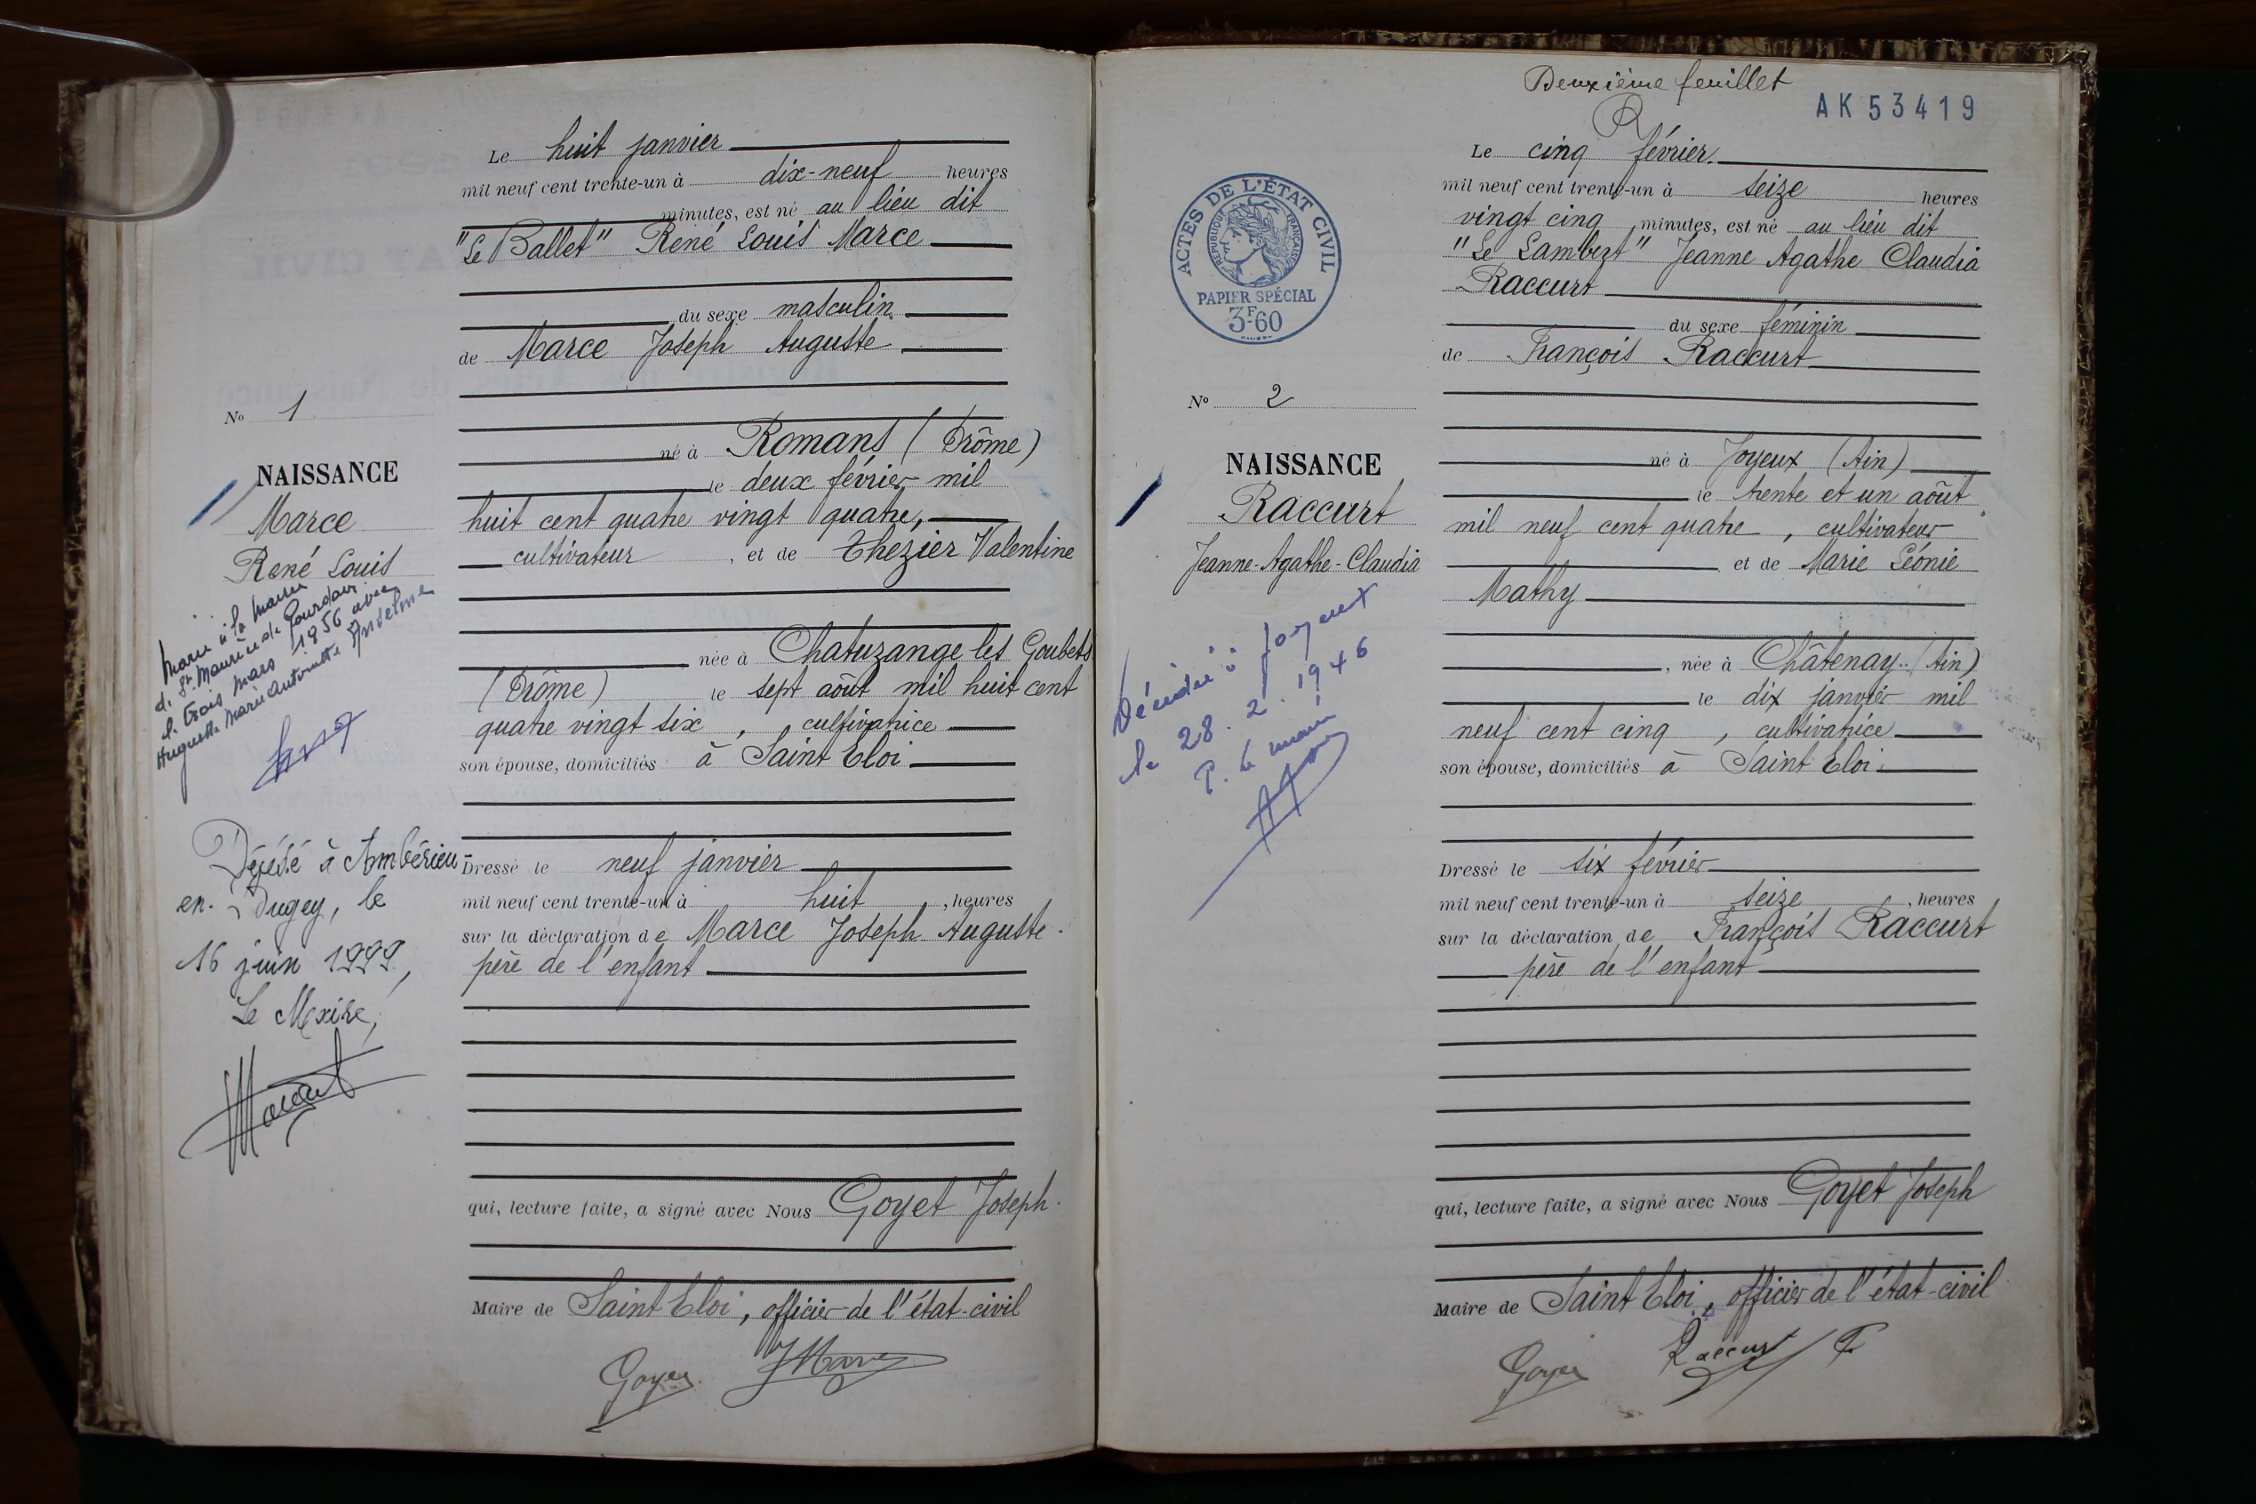 Le huit janvier
mil neuf cent trente-un à dix-neuf heures
minutes, est né au lieu dit
"Le Ballet" René Louis Marce
du sexe masculin
de Marce Joseph Auguste
né à Romans (Drôme)
le deux février mil
huit cent quatre vingt quatre,
cultivateur, et de Thezier Valentine
née à Chatuzange les Goubets
(Drôme) le sept août mil huit cent
quatre vingt six, cultivatrice
son épouse, domiciliés à Saint Eloi
Dressé le neuf janvier
mil neuf cent trente-un à huit, heures
sur la déclaration de Marce Joseph Auguste
père de l'enfant
qui, lecture faite, a signé avec Nous Goyet Joseph.
Maire de Saint Eloi, officier de l'état-civil
Goyet JMarce
No 1
NAISSANCE
Marce
René Louis
Marié à la Mairie
de St. Maurice de Gourdans
le trois mars 1956 avec
Huguette Marie Antoinette Anselme
Décédé à Ambérieu-
en-Bugey, le
16 juin 1999,
Le Maire,
Deuxième feuillet
AK 53419
Le cinq février.
mil neuf cent trente-un à seize heures
vingt cinq minutes, est né au lieu dit
"Le Lambert" Jeanne Agathe Claudia
Raccurt
du sexe féminin
de François Raccurt
né à Joyeux (Ain)
le trente et un août
mil neuf cent quatre, cultivateur
et de Marie Léonie
Mathy
, née à Châtenay (Ain)
le dix janvier mil
neuf cent cinq, cultivatrice
son épouse, domiciliés à Saint Eloi
Dressé le six février
mil neuf cent trente-un à seize, heures
sur la déclaration de François Raccurt
père de l'enfant
qui, lecture faite, a signé avec Nous Goyet Joseph
Maire de Saint Eloi, officier de l'état-civil
Goyet Raccurt F
ACTES DE L'ÉTAT CIVIL
RÉPUBLIQUE FRANÇAISE
PAPIER SPÉCIAL
3F60
No 2
NAISSANCE
Raccurt
Jeanne-Agathe-Claudia
Décédée à Joyeux
le 28.2.1946
P. le maire